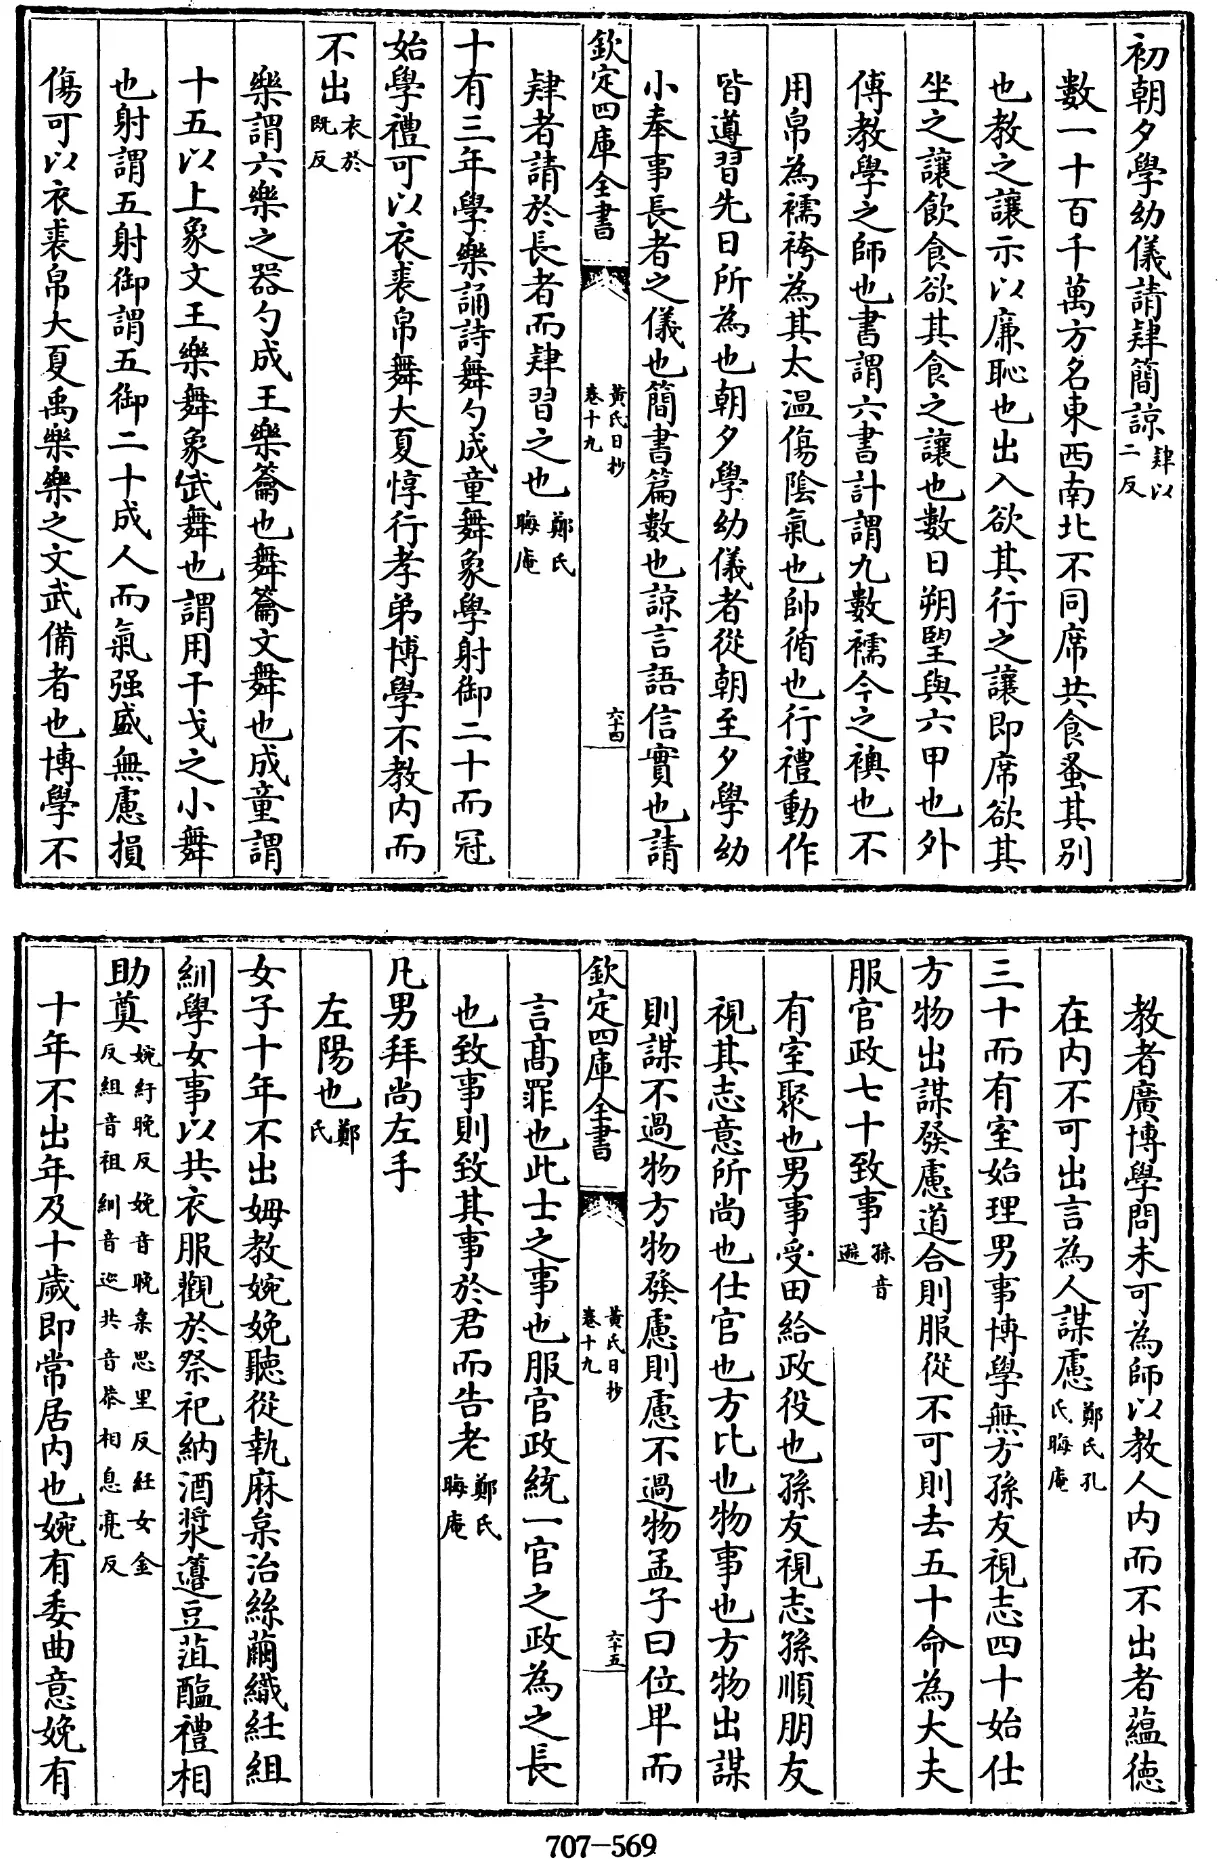 初朝夕學幼儀請肄簡諒肄以二反
數一十百千萬方名東西南北不同席共食蚤其別
也教之讓示以廉恥也出入欲其行之讓即席欲其
坐之讓飲食欲其食之讓也數日朔朢與六甲也外
傅教學之師也書謂六書計謂九數襦今之襖也不
用帛為襦袴為其太温傷陰氣也帥循也行禮動作
皆遵習先日所為也朝夕學幼儀者從朝至夕學幼
小奉事長者之儀也簡書篇數也諒言語信實也請
欽定四庫全書 黃氏日抄卷十九 六十四
肄者請於長者而肄習之也鄭氏晦庵
十有三年學樂誦詩舞勺成童舞象學射御二十而冠
始學禮可以衣裘帛舞大夏惇行孝弟博學不教内而
不出衣於既反
樂謂六樂之器勺成王樂籥也舞籥文舞也成童謂
十五以上象文王樂舞象武舞也謂用干戈之小舞
也射謂五射御謂五御二十成人而氣强盛無慮損
傷可以衣裘帛大夏禹樂樂之文武備者也博學不
教者廣博學問未可為師以教人内而不出者蘊徳
在内不可出言為人謀慮鄭氏孔氏晦庵
三十而有室始理男事博學無方孫友視志四十始仕
方物出謀發慮道合則服從不可則去五十命為大夫
服官政七十致事孫音遜
有室聚也男事受田給政役也孫友視志孫順朋友
視其志意所尚也仕官也方比也物事也方物出謀
則謀不過物方物發慮則慮不過物孟子曰位卑而
欽定四庫全書 黃氏日抄卷十九 六十五
言髙罪也此士之事也服官政統一官之政為之長
也致事則致其事於君而告老鄭氏晦庵
凡男拜尚左手
左陽也鄭氏
女子十年不出姆教婉娩聽從執麻枲治絲繭織紝組
紃學女事以共衣服觀於祭祀納酒漿籩豆菹醢禮相
助奠婉紆晚反娩音晚枲思里反紝女金反組音祖紃音巡共音恭相息亮反
十年不出年及十歲即常居内也婉有委曲意娩有
707-569